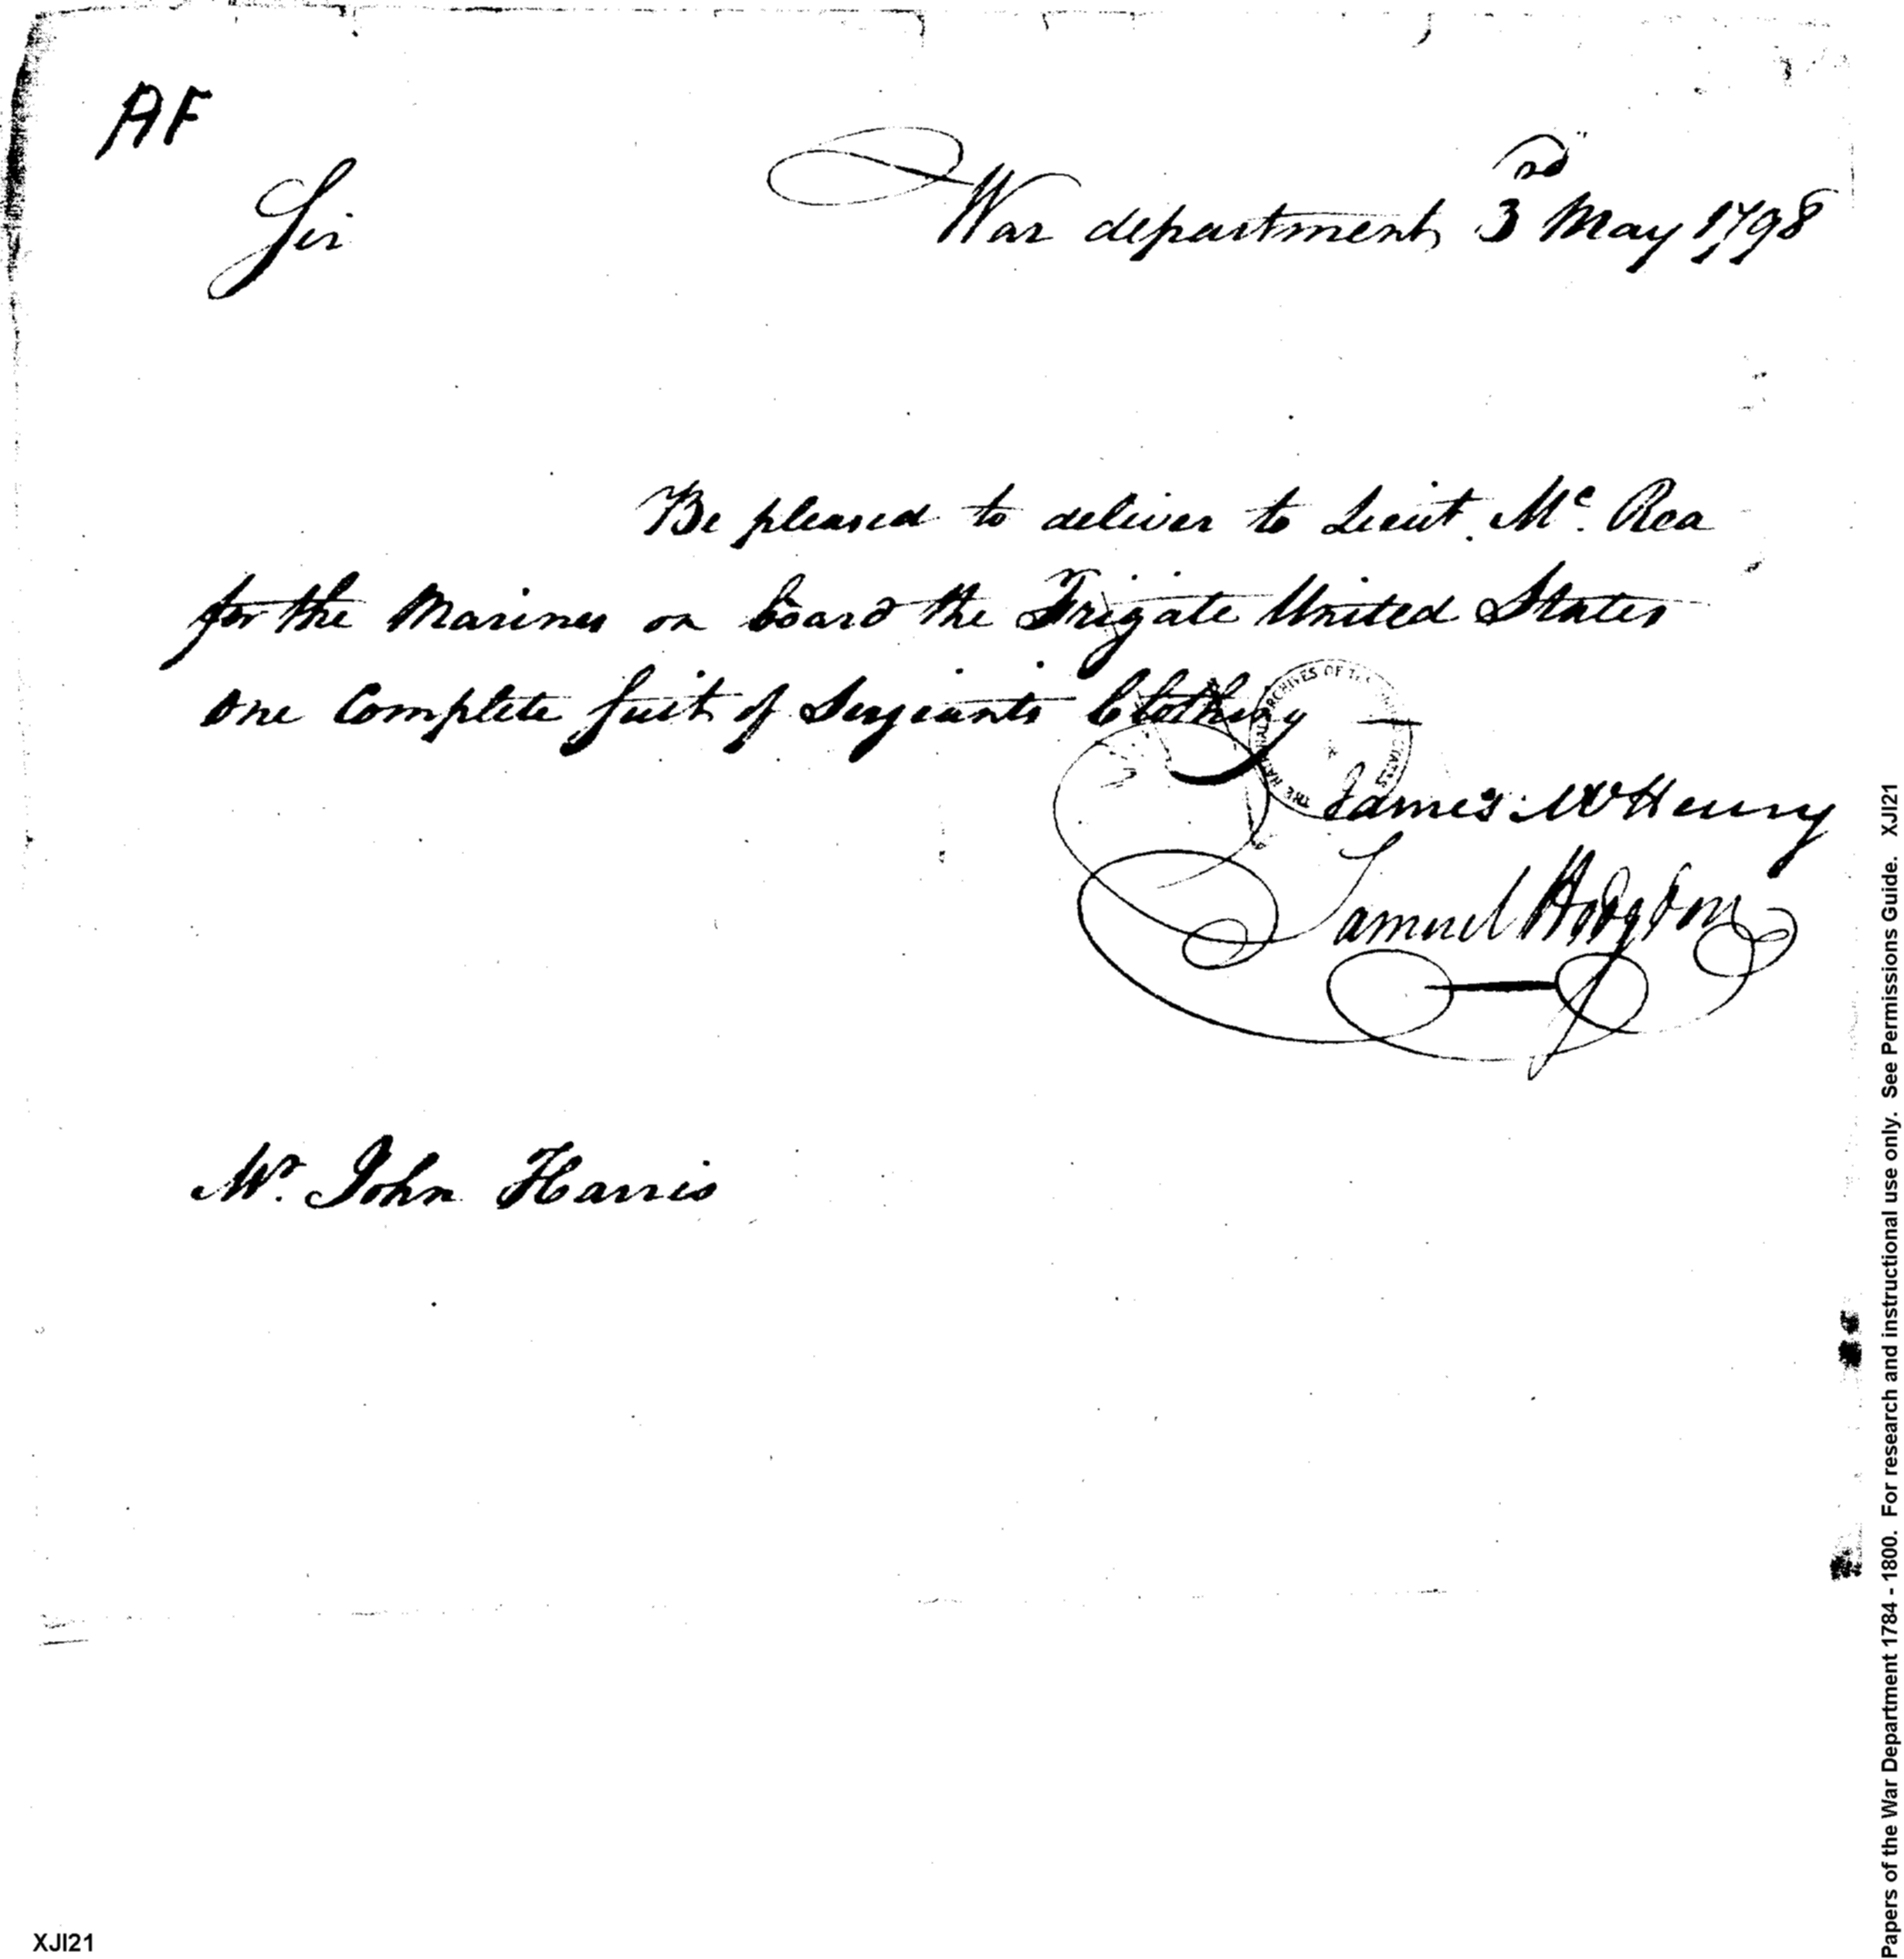 AF
Sir
War department 3rd May 1798
Be pleased to deliver to Lieut. Mc. Rea
for the Marines on board the Frigate United States
One Complete suit of Serjeants Clothing
James McHenry
Samuel Hodgdon
Mr. John Harris
THE NATIONAL ARCHIVES OF THE UNITED STATES
XJI21
Papers of the War Department 1784 - 1800. For research and instructional use only. See Permissions Guide. XJI21